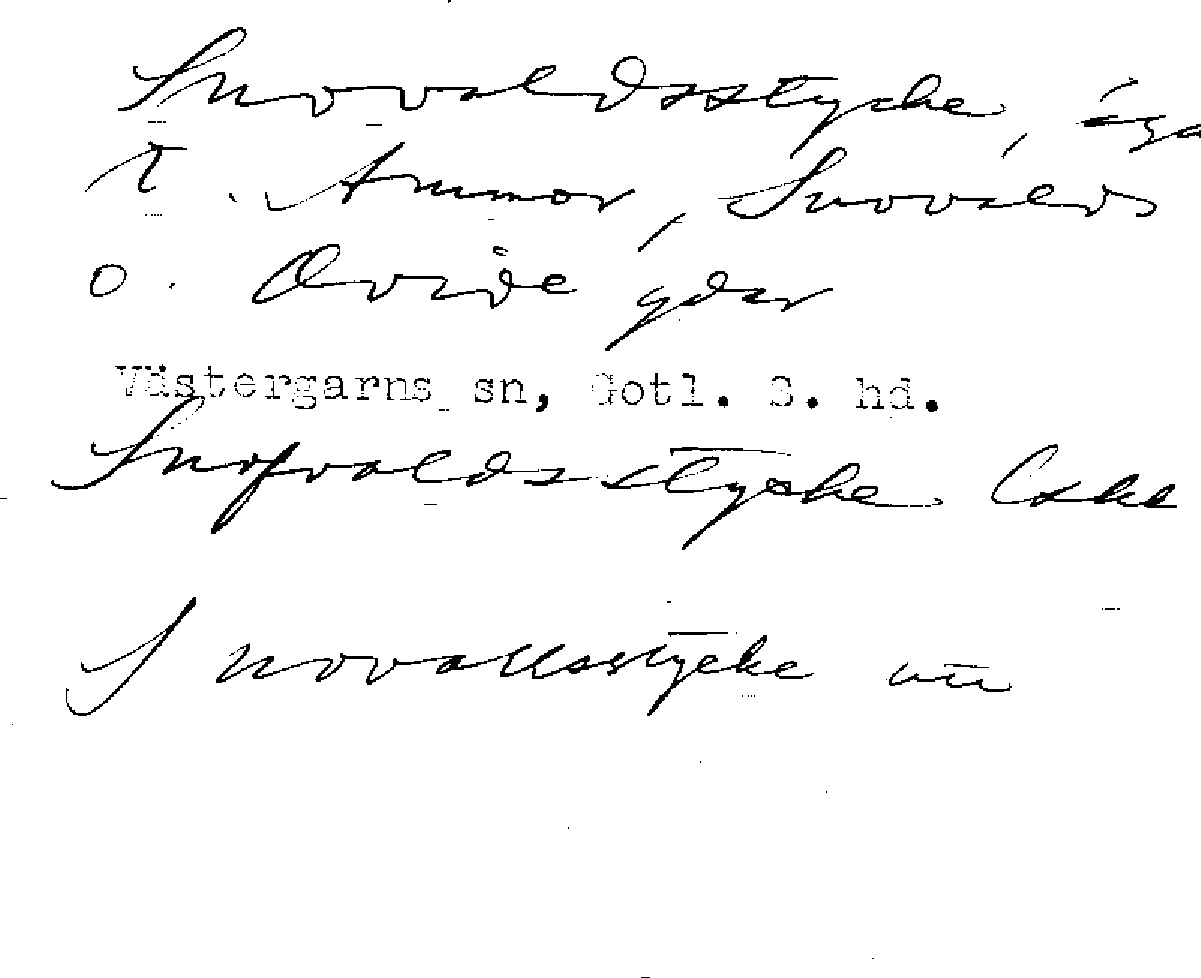 Snovaldsstycke, äga
t. Ammor, Snovalds
o. Övide gdar
Västergarns sn, Gotl. S. hd.
Snofvaldsstycke Eske
Snovallsstycke